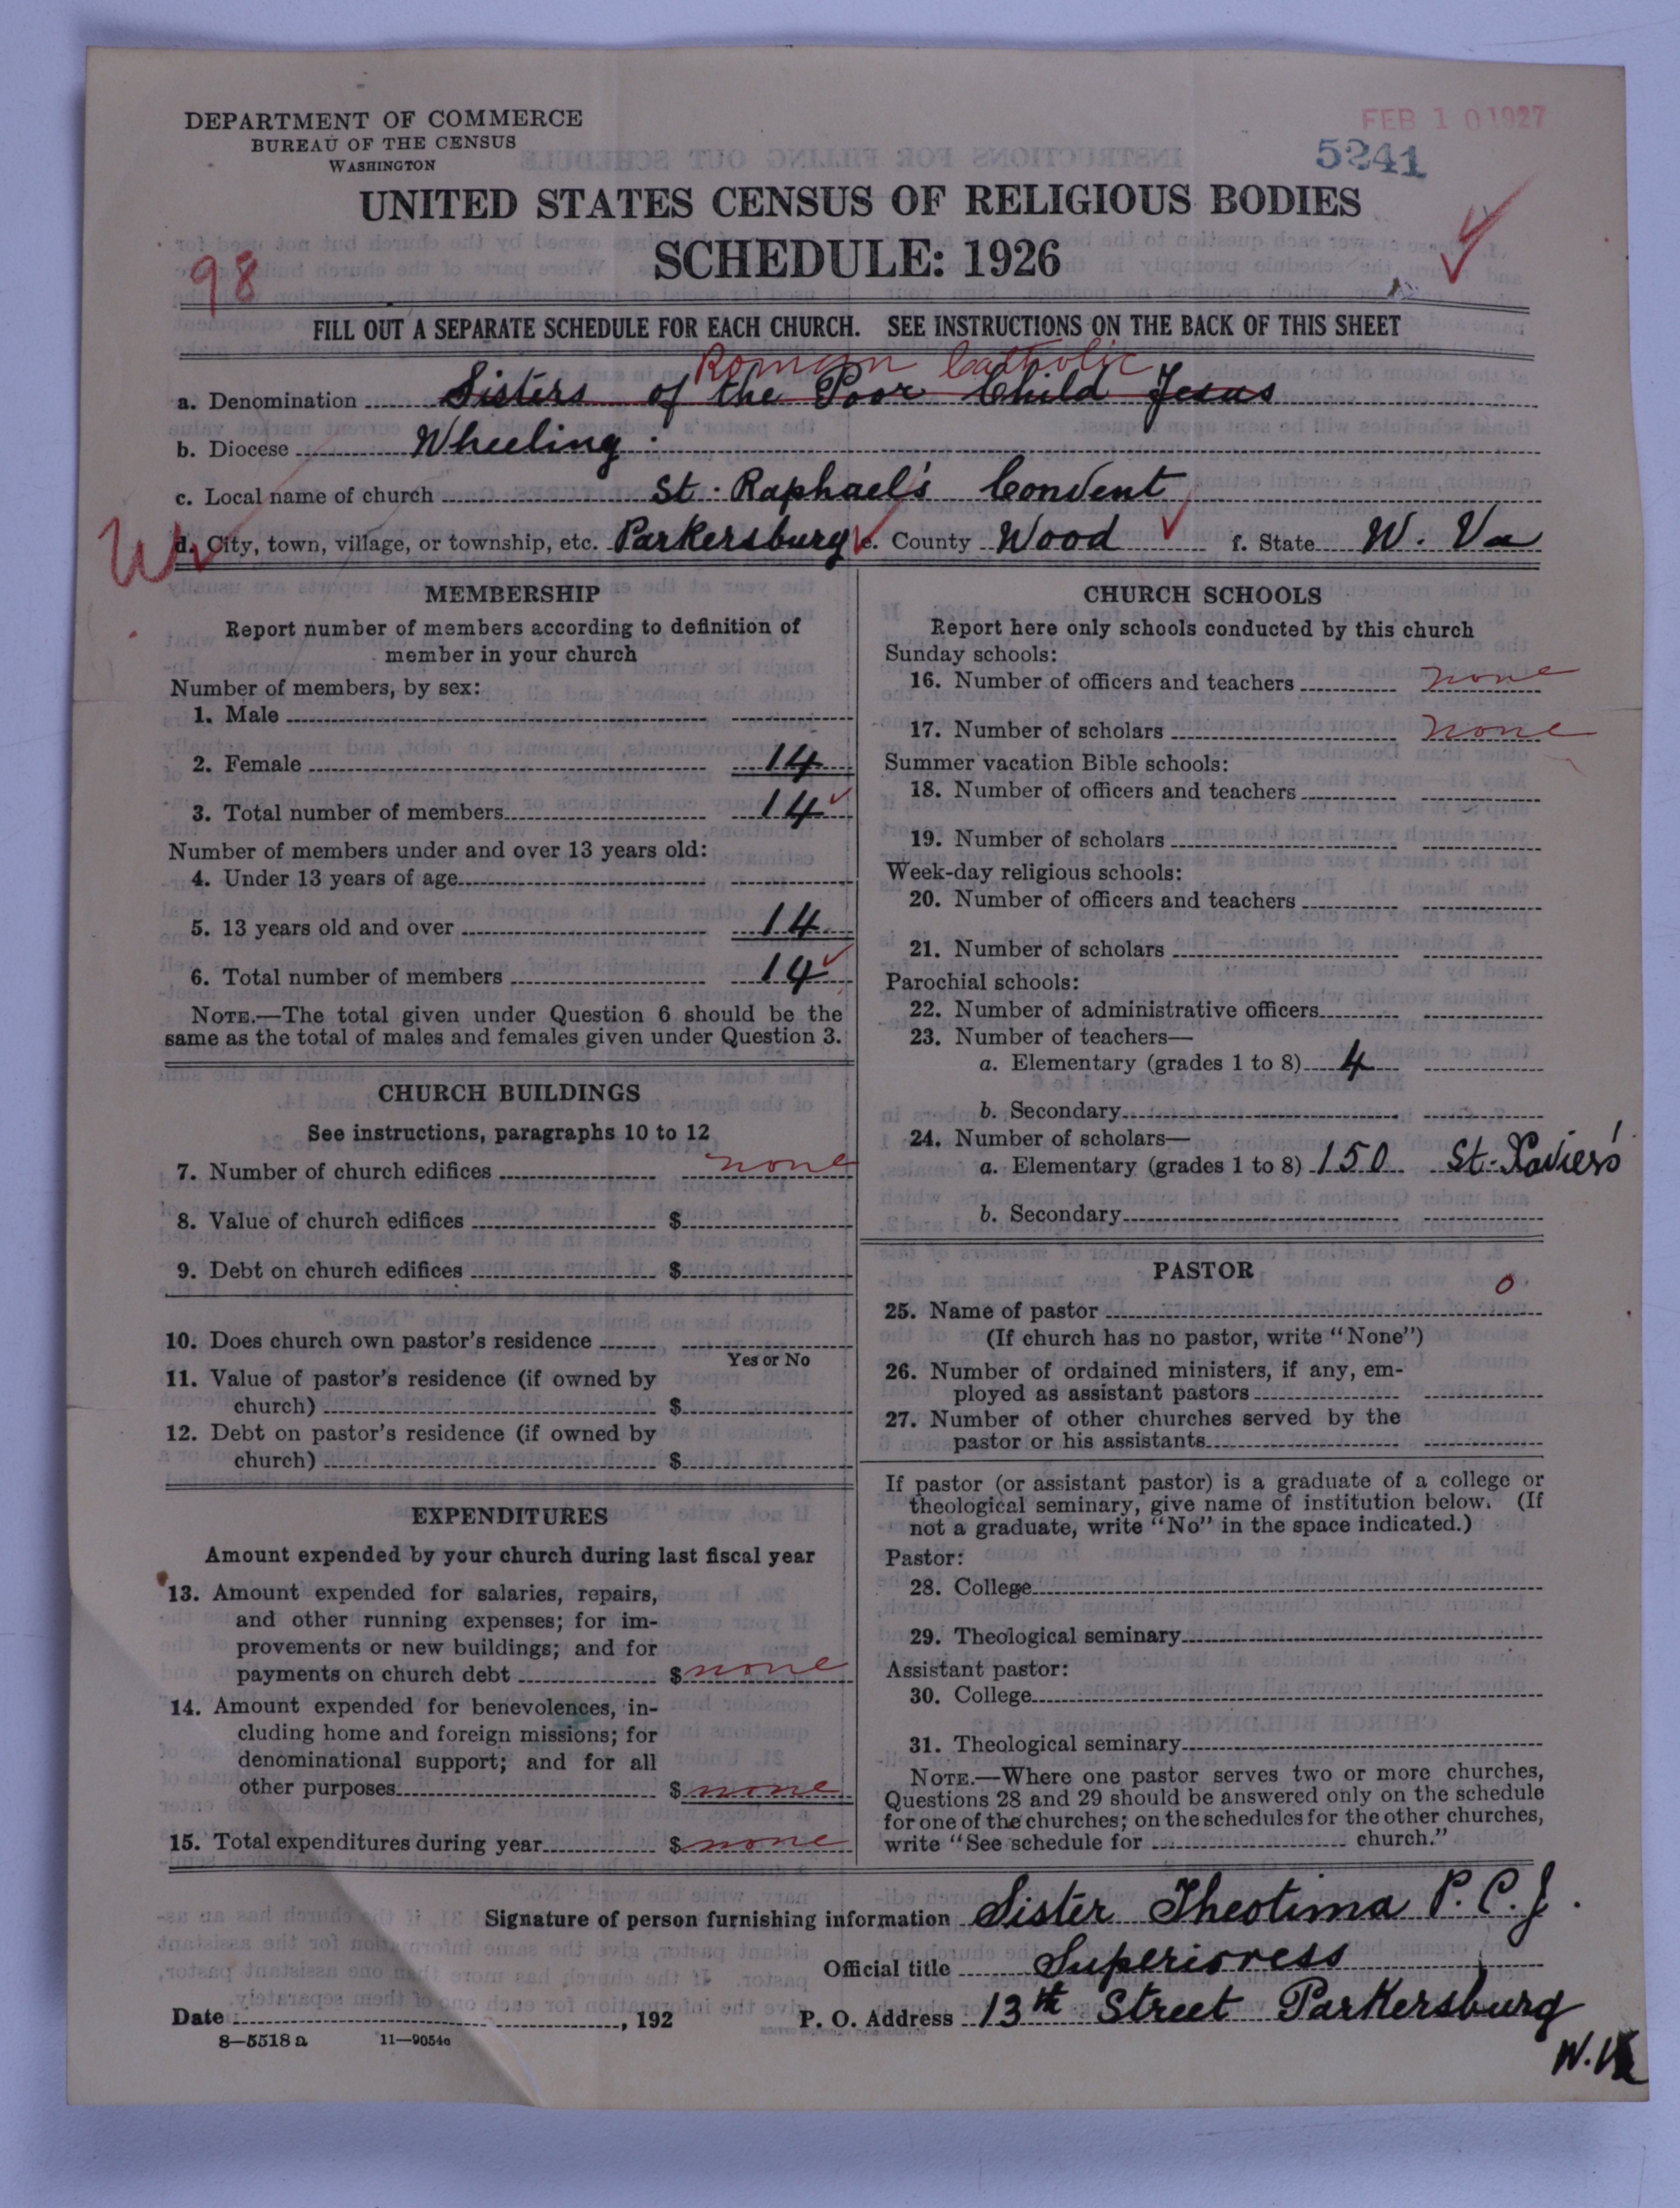 DEPARTMENT OF COMMERCE
BUREAU OF THE CENSUS
WASHINGTON
FEB 10 1927
5241
UNITED STATES CENSUS OF RELIGIOUS BODIES
SCHEDULE: 1926
98
FILL OUT A SEPARATE SCHEDULE FOR EACH CHURCH. SEE INSTRUCTIONS ON THE BACK OF THIS SHEET
Roman Catholic
a. Denomination Sisters of the Poor Child Jesus
b. Diocese Wheeling
c. Local name of church St. Raphael's Convent
d. City, town, village, or township, etc. Parkersburg e. County Wood f. State W. Va
MEMBERSHIP
Report number of members according to definition of
member in your church
Number of members, by sex:
1. Male
2. Female 14
3. Total number of members 14
Number of members under and over 13 years old:
4. Under 13 years of age
5. 13 years old and over 14
6. Total number of members 14
NOTE.—The total given under Question 6 should be the
same as the total of males and females given under Question 3.
CHURCH BUILDINGS
See instructions, paragraphs 10 to 12
7. Number of church edifices none
8. Value of church edifices $
9. Debt on church edifices $
10. Does church own pastor's residence
Yes or No
11. Value of pastor's residence (if owned by
church) $
12. Debt on pastor's residence (if owned by
church) $
EXPENDITURES
Amount expended by your church during last fiscal year
13. Amount expended for salaries, repairs,
and other running expenses; for im-
provements or new buildings; and for
payments on church debt $ none
14. Amount expended for benevolences, in-
cluding home and foreign missions; for
denominational support; and for all
other purposes $ none
15. Total expenditures during year $ none
CHURCH SCHOOLS
Report here only schools conducted by this church
Sunday schools:
16. Number of officers and teachers none
17. Number of scholars none
Summer vacation Bible schools:
18. Number of officers and teachers
19. Number of scholars
Week-day religious schools:
20. Number of officers and teachers
21. Number of scholars
Parochial schools:
22. Number of administrative officers
23. Number of teachers—
a. Elementary (grades 1 to 8) 4
b. Secondary
24. Number of scholars—
a. Elementary (grades 1 to 8) 150 St. Xavier's
b. Secondary
PASTOR
25. Name of pastor 0
(If church has no pastor, write "None")
26. Number of ordained ministers, if any, em-
ployed as assistant pastors
27. Number of other churches served by the
pastor or his assistants
If pastor (or assistant pastor) is a graduate of a college or
theological seminary, give name of institution below. (If
not a graduate, write "No" in the space indicated.)
Pastor:
28. College
29. Theological seminary
Assistant pastor:
30. College
31. Theological seminary
NOTE.—Where one pastor serves two or more churches,
Questions 28 and 29 should be answered only on the schedule
for one of the churches; on the schedules for the other churches,
write "See schedule for church."
Signature of person furnishing information Sister Theotima P. C. J.
Official title Superioress
Date , 192 P. O. Address 13th Street Parkersburg
W. Va
8—5518 a 11—9054c